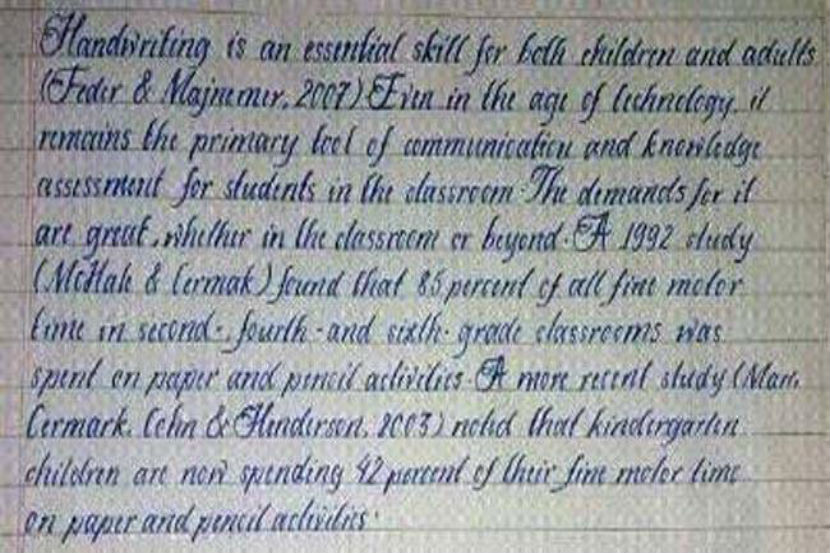 Handwriting is an essential skill for both children and adults
(Feder & Majnemer, 2007) Even in the age of technology, it
remains the primary tool of communication and knowledge
assessment for students in the classroom. The demands for it
are great, whether in the classroom or beyond. A 1992 study
(McHale & Cermak) found that 85 percent of all fine motor
time in second-, fourth-and sixth-grade classrooms was
spent on paper and pencil activities. A more recent study (Marr,
Cermark, Cohn & Henderson, 2003) noted that kindergarten
children are now spending 42 percent of their fine motor time
on paper and pencil activities.